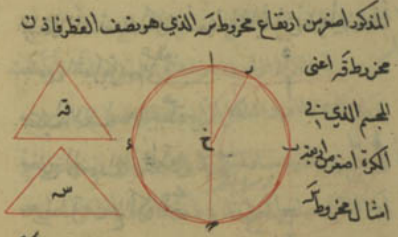 المذكور اصغر من ارتفاع مخروط سه الذي هو نصف القطر فاذن
مخروط قه اعنى
المجسم الذي في
الكرة اصغر من اربعة
امثال مخروط سه
ا
ر
ب
خ
ء
ح
قه
سه